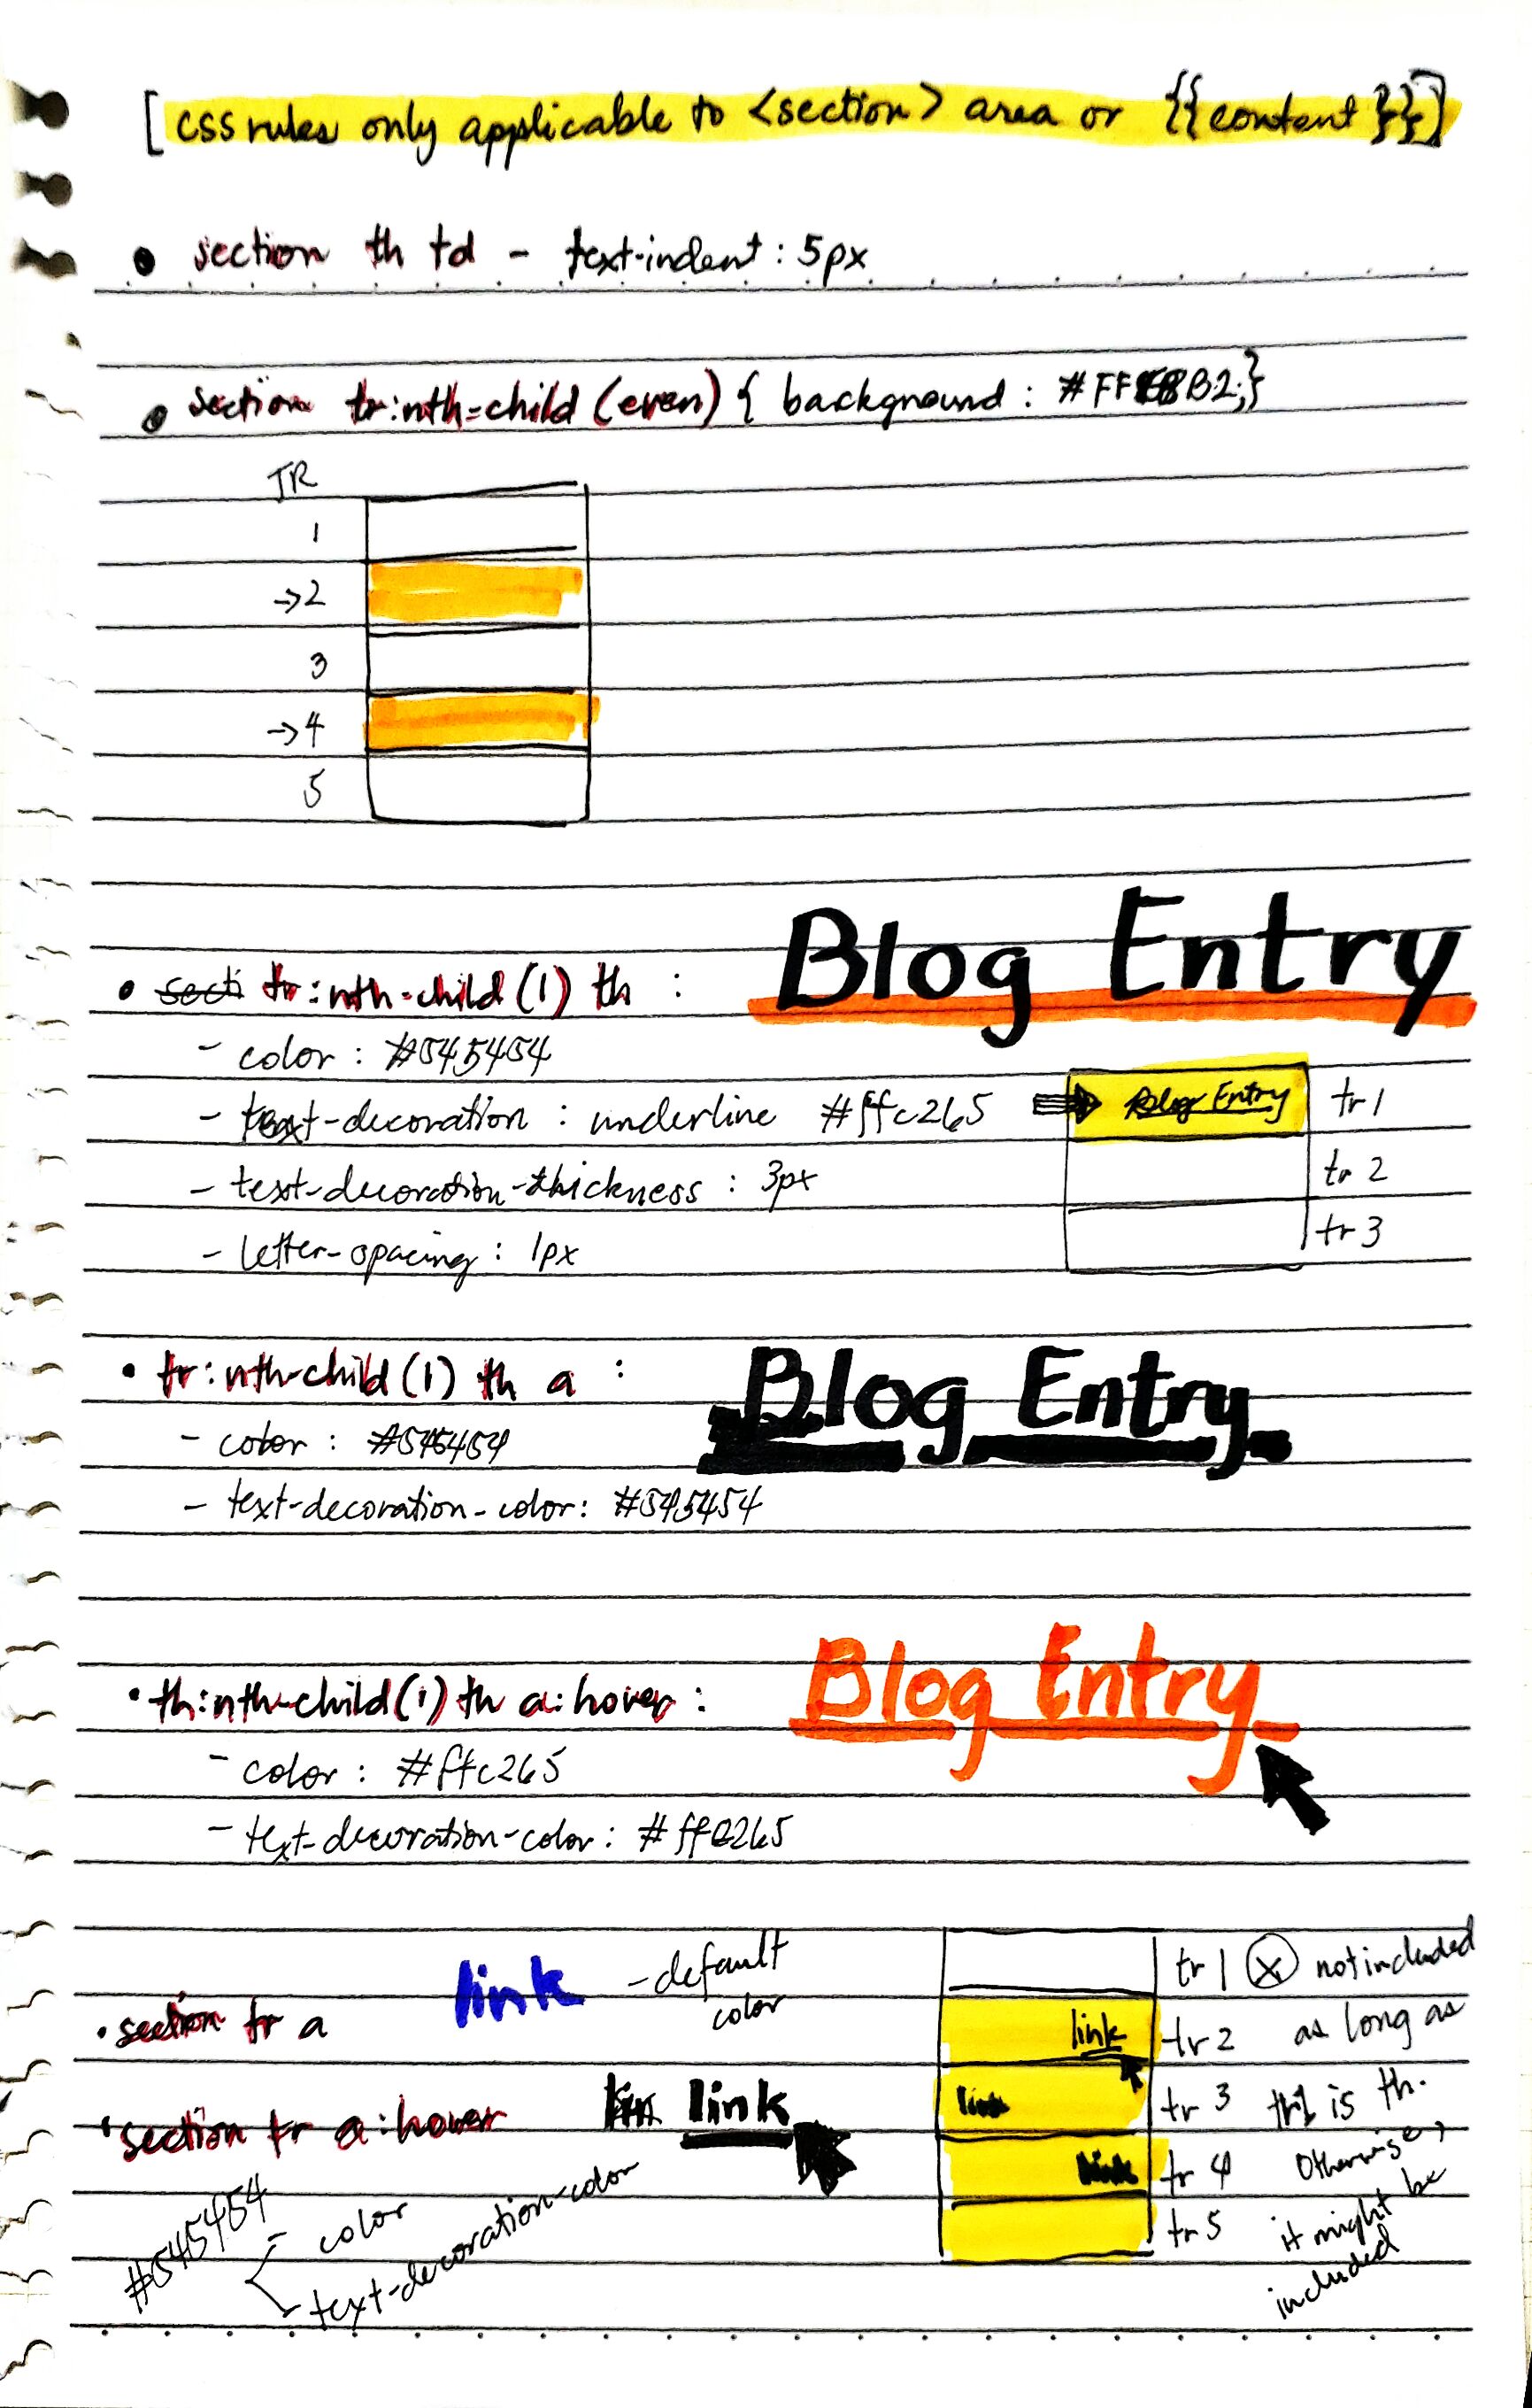 [ css rules only applicable to <section> area or {{content}}]
• section th td - text-indent : 5px
• section tr:nth-child (even) { background : #FFE8B2;}
TR
1
→2
3
→4
5
Blog Entry
• secti tr:nth-child (1) th :
- color : #545454
- text-decoration : underline #ffc265
Blog Entry tr 1
- text-decoration-thickness : 3px
tr 2
- letter-spacing : 1px
tr 3
• tr:nth-child (1) th a :
Blog Entry
- color : #545454
- text-decoration-color : #545454
• th:nth-child(1) th a:hover :
Blog Entry
- color : #ffc265
- text-decoration-color : #ffc265
• section tr a
link - default
color
• section tr a:hover
link
#545454
- color
- text-decoration-color
tr 1 ⓧ not included
link tr 2 as long as
link tr 3 tr1 is th.
link tr 4 Otherwise,
tr 5 it might be
included